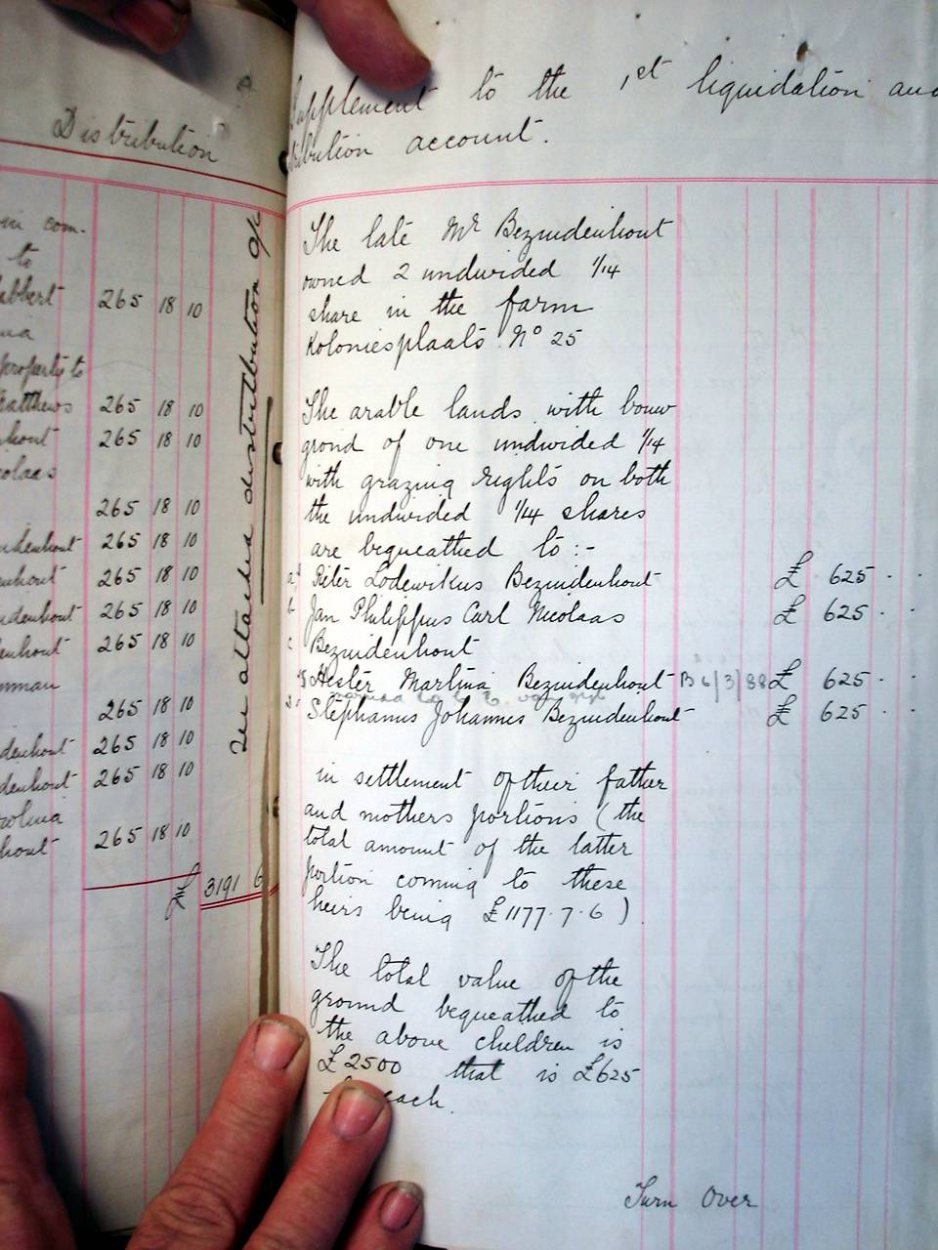 Distribution
in com.
to
abbert 265 18 10
property to
Matthews 265 18 10
hout 265 18 10
colaas
265 18 10
udenhout 265 18 10
enhout 265 18 10
udenhout 265 18 10
denhout 265 18 10
nman
265 18 10
denhout 265 18 10
denhout 265 18 10
rolina
hout 265 18 10
£ 3191 6
see attached distribution a/c
Supplement to the 1st liquidation and
tribution account.
The late Mr Bezuidenhout
owned 2 undivided 1/14
share in the farm
Koloniesplaats No 25
The arable lands with bouw
grond of one undivided 1/14
with grazing rights on both
the undivided 1/14 shares
are bequeathed to :-
a Pieter Lodewikus Bezuidenhout £ 625 . .
b Jan Philippus Carl Nicolaas £ 625 . .
c Bezuidenhout
Hester Martina Bezuidenhout B 6/3/88 £ 625 . .
Stephanus Johannes Bezuidenhout £ 625 . .
in settlement of their father
and mothers portions (the
total amount of the latter
portion coming to these
heirs being £1177.7.6)
The total value of the
ground bequeathed to
the above children is
£2500 that is £625
each.
Turn Over